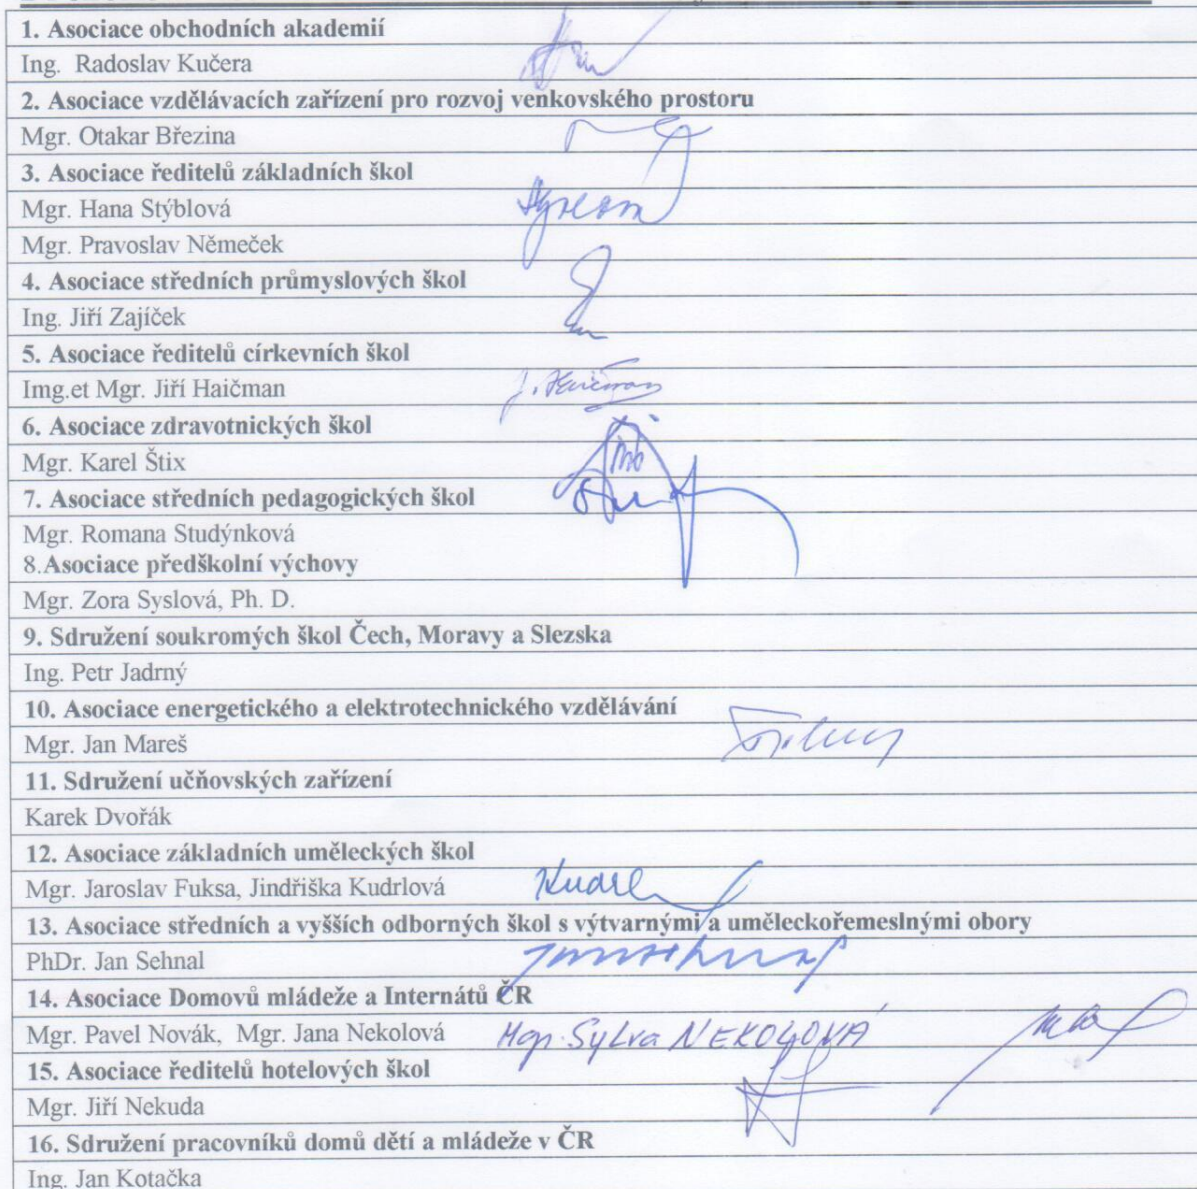 1. Asociace obchodních akademií
Ing. Radoslav Kučera
2. Asociace vzdělávacích zařízení pro rozvoj venkovského prostoru
Mgr. Otakar Březina
3. Asociace ředitelů základních škol
Mgr. Hana Stýblová
Mgr. Pravoslav Němeček
4. Asociace středních průmyslových škol
Ing. Jiří Zajíček
5. Asociace ředitelů církevních škol
Img.et Mgr. Jiří Haičman J. Haičman
6. Asociace zdravotnických škol
Mgr. Karel Štix
7. Asociace středních pedagogických škol
Mgr. Romana Studýnková
8.Asociace předškolní výchovy
Mgr. Zora Syslová, Ph. D.
9. Sdružení soukromých škol Čech, Moravy a Slezska
Ing. Petr Jadrný
10. Asociace energetického a elektrotechnického vzdělávání
Mgr. Jan Mareš
11. Sdružení učňovských zařízení
Karek Dvořák
12. Asociace základních uměleckých škol
Mgr. Jaroslav Fuksa, Jindřiška Kudrlová
13. Asociace středních a vyšších odborných škol s výtvarnými a uměleckořemeslnými obory
PhDr. Jan Sehnal
14. Asociace Domovů mládeže a Internátů ČR
Mgr. Pavel Novák, Mgr. Jana Nekolová Mgr. Sylva NEKOLOVÁ
15. Asociace ředitelů hotelových škol
Mgr. Jiří Nekuda
16. Sdružení pracovníků domů dětí a mládeže v ČR
Ing. Jan Kotačka